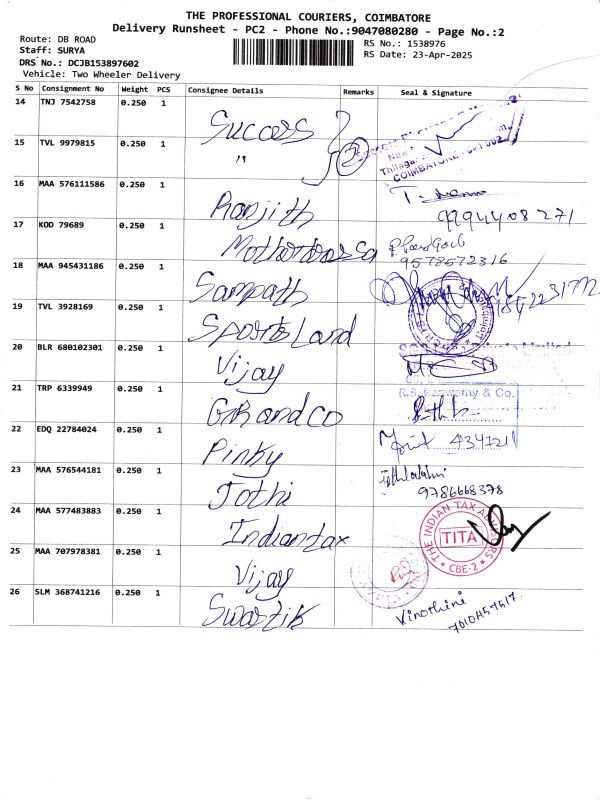 THE PROFESSIONAL COURIERS, COIMBATORE
Delivery Runsheet - PC2 - Phone No.:9047080280 - Page No.:2
Route: DB ROAD
RS No.: 1538976
Staff: SURYA
RS Date: 23-Apr-2025
DRS No.: DCJB153897602
Vehicle: Two Wheeler Delivery
S No Consignment No Weight PCS Consignee Details Remarks Seal & Signature
14 TNJ 7542758 0.250 1 Success
15 TVL 9979815 0.250 1 " 2
COIMBATORE
16 MAA 576111586 0.250 1 Ranjith 9944408271
17 KOD 79689 0.250 1 9578572316
18 MAA 945431186 0.250 1 Sampath
19 TVL 3928169 0.250 1 Sports Land
20 BLR 680102301 0.250 1 Vijay
21 TRP 6339949 0.250 1 GR and CO & Co.
22 EDQ 22784024 0.250 1 Pinky
23 MAA 576544181 0.250 1 Jothi 9786668378
24 MAA 577483883 0.250 1 Indian tax
THE INDIAN TAX
TITA
CBE-2
25 MAA 707978381 0.250 1 Vijay
26 SLM 368741216 0.250 1 Swastik Vinothini